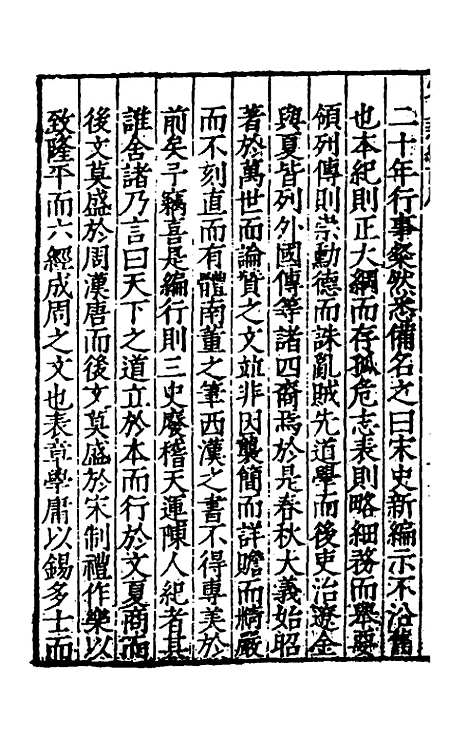 二十年行事粲然悉備名之曰宋史新編示不沿舊
也本紀則正大綱而存孤危志表則略細務而舉要
領列傳則崇勳德而誅亂賊先道學而後吏治遼金
與夏皆列外國傳等諸四裔焉於是春秋大義始昭
著於萬世而論贊之文竝非因襲簡而詳贍而精嚴
而不刻直而有體南董之筆西漢之書不得專美於
前矣予竊喜是編行則三史廢稽天運陳人紀者其
誰舍諸乃言曰天下之道立於本而行於文夏商而
後文莫盛於周漢唐而後文莫盛於宋制禮作樂以
致隆平而六經成周之文也表章學庸以錫多士而